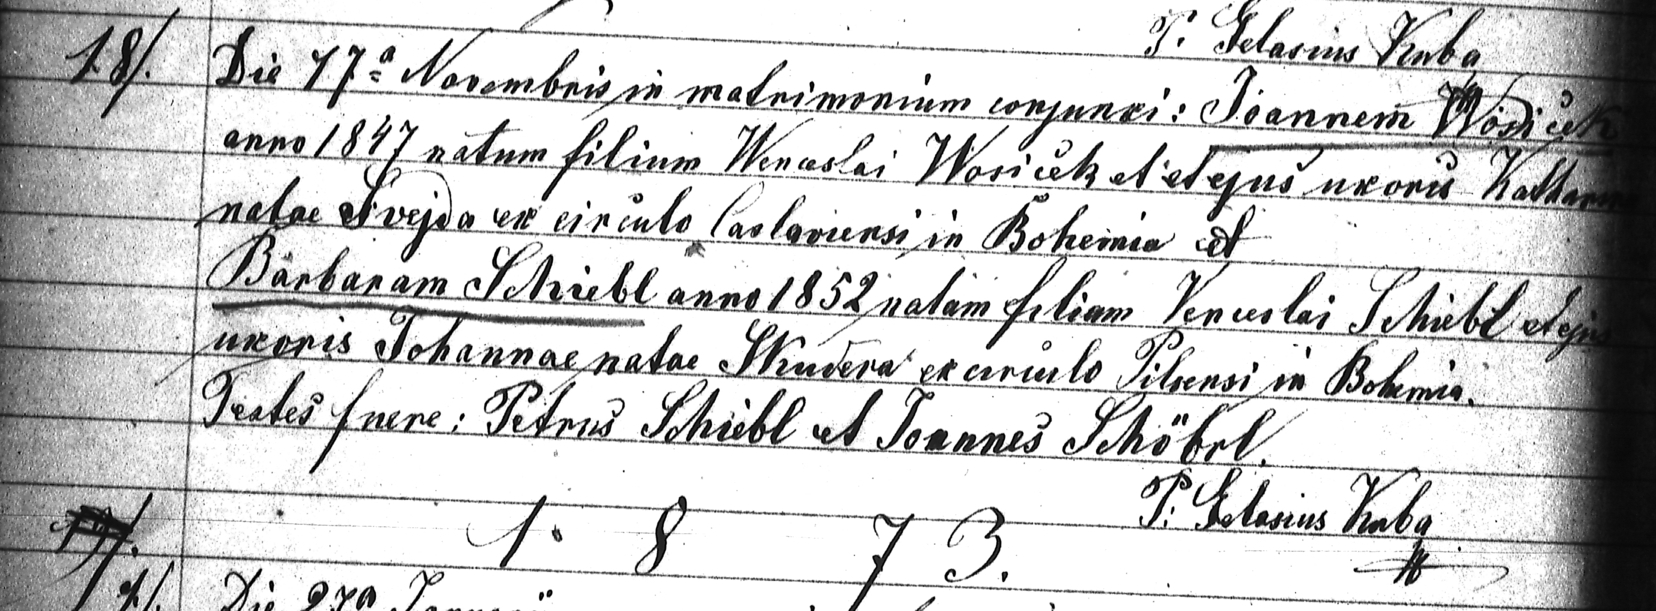 P. Gelasius Kuba
18/. Die 17ª Novembris in matrimonium conjunxi: Joannem Wosiček
anno 1847 natum filium Wenceslai Wosiček et et ejus uxoris Katharin
natae Švejda ex circulo Caslaviensi in Bohemia et
Barbaram Schiebl anno 1852 natam filiam Venceslai Schiebl et ejus
uxoris Johannae natae Skudera ex circulo Pilsensi in Bohemia.
Testes fuere: Petrus Schiebl et Joannes Schöbrl.
P. Gelasius Kuba
1873.
1/. Die 27ª Januarii